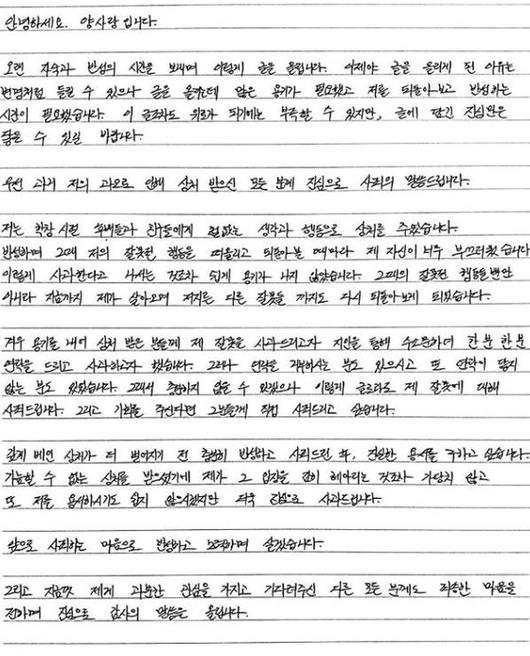 안녕하세요. 양사랑입니다.
오랜 자숙과 반성의 시간을 보내며 이렇게 글을 올립니다. 이제야 글을 올리게 된 이유는
변명처럼 들릴 수 있으나 글을 올리는데 많은 용기가 필요했고 저를 되돌아보고 반성하는
시간이 필요했습니다. 이 글조차도 위로가 되기에는 부족할 수 있지만, 글에 담긴 진심만은
닿을 수 있길 바랍니다.
우선 과거 저의 과오로 인해 상처 받으신 모든 분께 진심으로 사죄의 말씀드립니다.
저는 학창시절 후배들과 친구들에게 철없는 생각과 행동으로 상처를 주었습니다.
반성하며 그때 저의 잘못된 행동을 떠올리고 되돌아볼 때마다 제 자신이 너무 부끄러웠습니다
이렇게 사과한다고 나서는 것조차 쉽게 용기가 나지 않았습니다. 그때의 잘못된 행동들뿐만
아니라 지금까지 제가 살아오며 저지른 다른 잘못들 까지도 다시 되돌아보게 되었습니다.
겨우 용기를 내어 상처 받은 분들께 제 잘못을 사과드리고자 지인을 통해 수소문하며 한분 한분
연락을 드리고 사과하고자 했습니다. 그러나 연락을 거부하시는 분도 있으시고 또 연락이 닿지
않는 분도 있었습니다. 그래서 충분하지 않을 수 있겠으나 이렇게 글로라도 제 잘못에 대해
사죄드립니다. 그리고 기회를 주신다면 그분들께 직접 사죄드리고 싶습니다.
깊게 베인 상처가 더 벌어지기 전 충분히 반성하고 사죄드린 후, 진실한 용서를 구하고 싶습니다.
가늠할 수 없는 상처를 받으셨기에 제가 그 입장을 감히 헤아리는 것조차 가당치 않고
또 저를 용서하시기도 쉽지 않으시겠지만 더욱 진심으로 사과드립니다.
앞으로 사죄하는 마음으로 반성하고 노력하며 살겠습니다.
그리고 지금껏 제게 과분한 관심을 가지고 기다려주신 다른 모든 분께도 죄송한 마음을
전하며 진심으로 감사의 말씀을 올립니다.